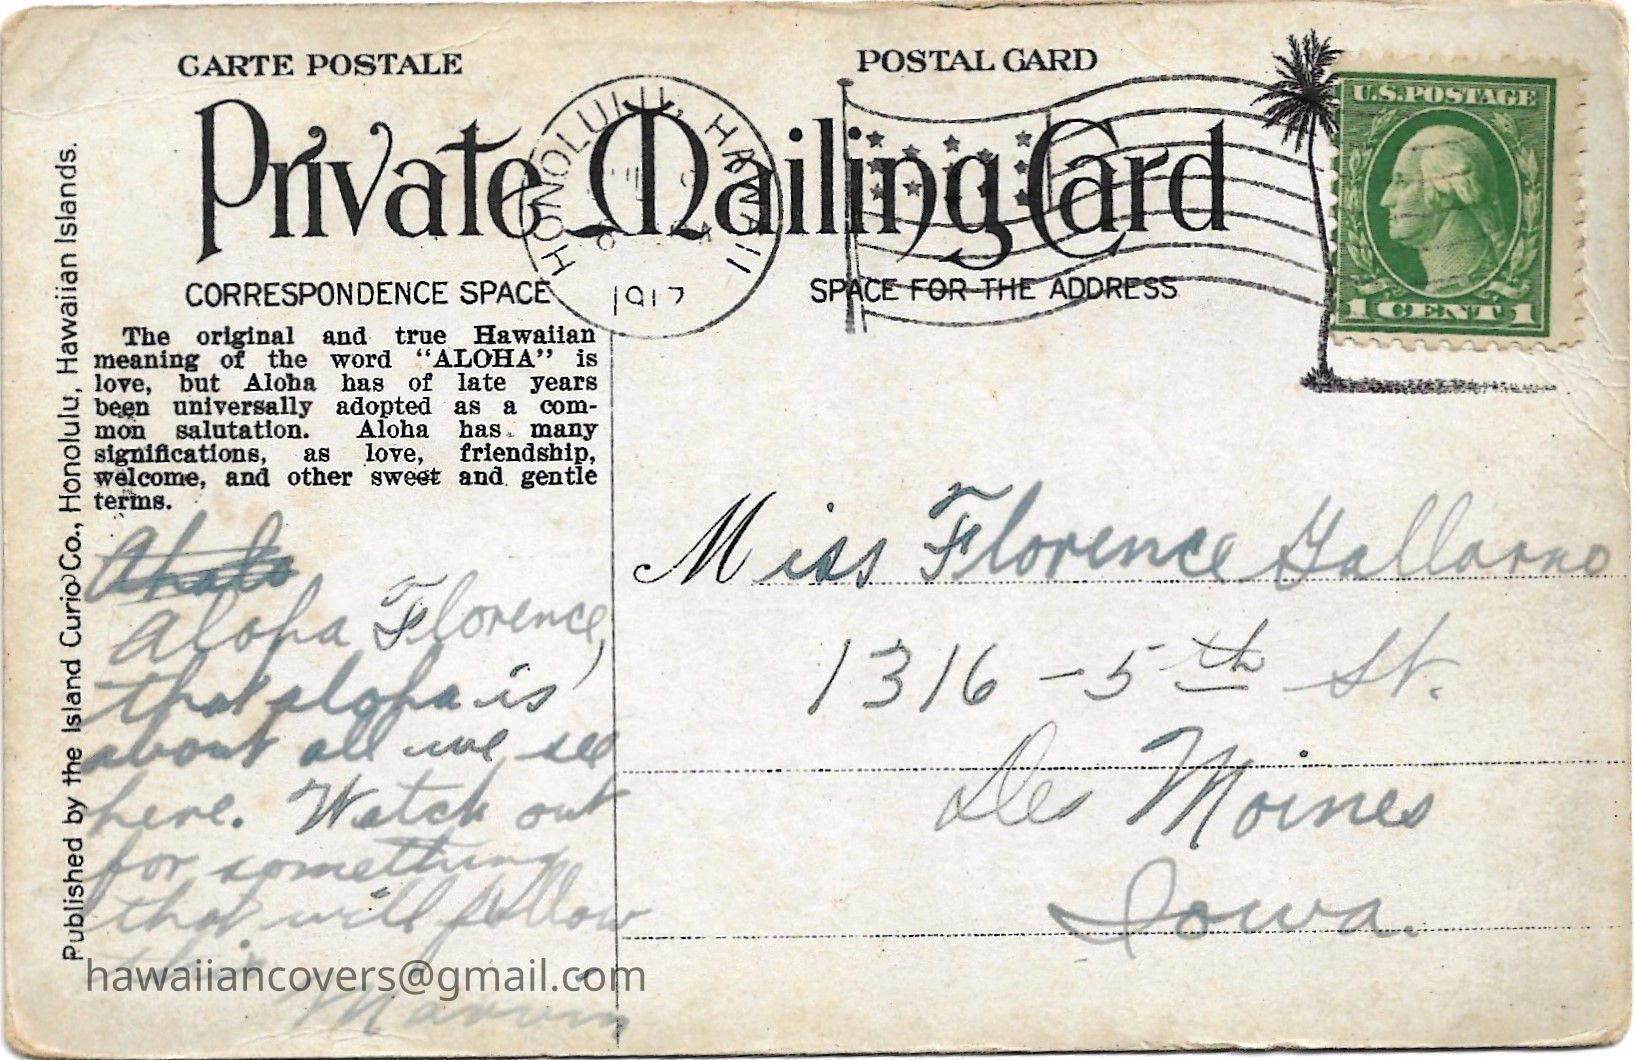 CARTE POSTALE
POSTAL CARD
Private Mailing Card
CORRESPONDENCE SPACE
SPACE FOR THE ADDRESS
HONOLULU, HAWAII
1917
U.S. POSTAGE
1 CENT 1
Published by the Island Curio Co., Honolulu, Hawaiian Islands.
The original and true Hawaiian
meaning of the word “ALOHA” is
love, but Aloha has of late years
been universally adopted as a com-
mon salutation. Aloha has many
significations, as love, friendship,
welcome, and other sweet and gentle
terms.
Aloha Florence,
that aloha is
about all we see
here. Watch out
for something
that will follow
this
Marvin
Miss Florence Gallarno
1316 - 5th St.
Des Moines
Iowa.
hawaiiancovers@gmail.com